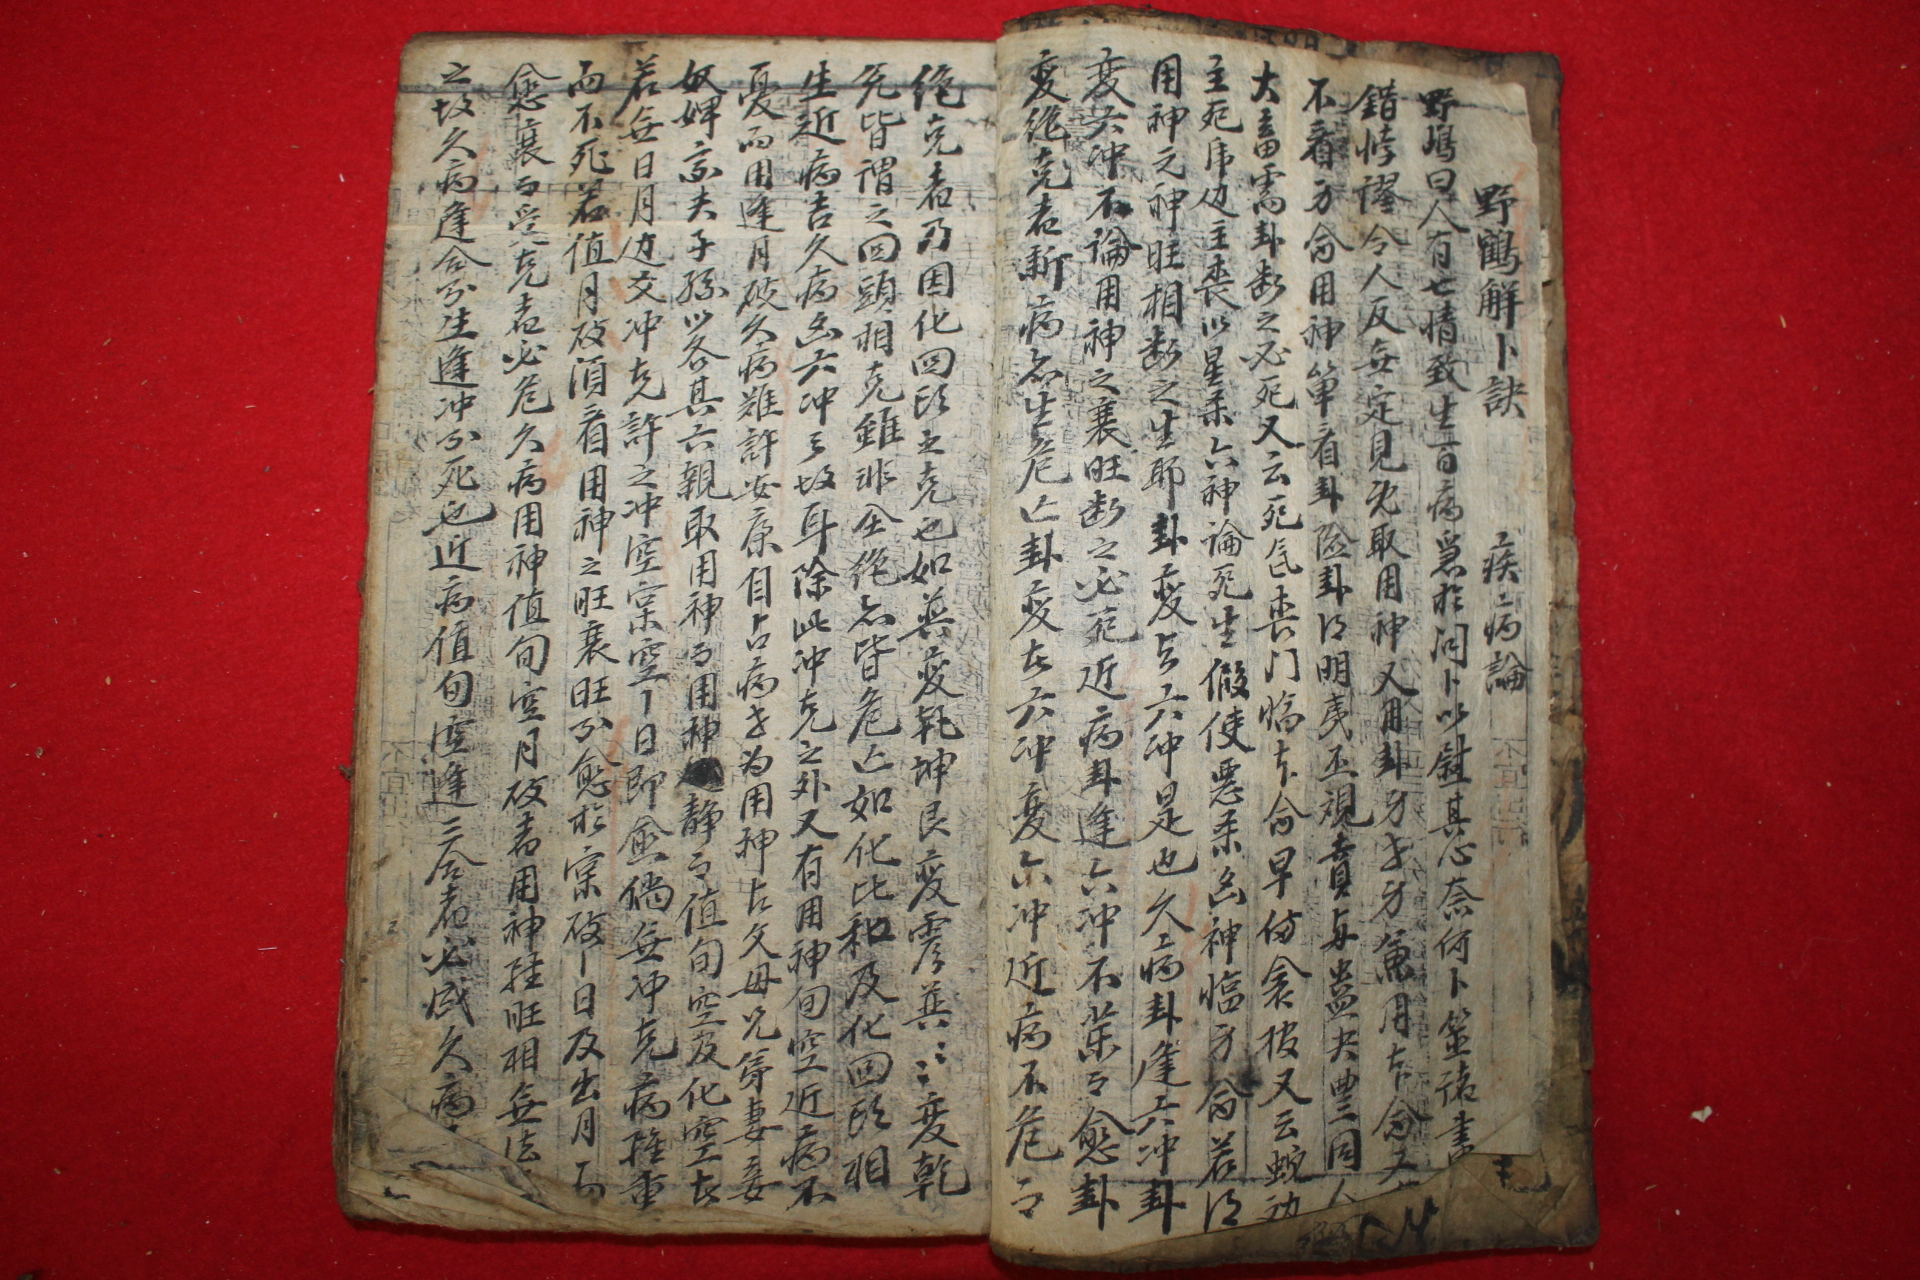 野鶴解卜訣 疾病論
野鶴曰人有七情致生百病急於問卜以慰其心奈何卜筮諸書
錯悖謬令人反無定見既取用神又用卦身世身兼用本命又
不看身命用神單看卦險卦得明夷丕視賁與蠱夬豊同人
大畜需卦断之必死又云死氣喪门臨本命早俻衾披又云蛇动
主死乕边主喪以星杀六神論死生假使悪杀凶神臨身命若得
用神元神旺相断之生耶卦变与六冲是也久病卦逢六冲卦
变六冲不論用神之衰旺断之必死近病卦逢六冲不藥而愈卦
变絶克者新病危生危亡卦变在六冲变六冲近病不危而
絶克者乃因化回頭之克也如巽变乾坤艮变震巽〻变乾
兌皆謂之回頭相克雖非全絶亦皆危亡如化比和及化回頭相
生近病吉久病凶六冲之故耳除此冲克之外又有用神旬空近病不
憂而用逢月破久病难許安康自占病世为用神占父母兄弟妻妾
奴婢家夫子孫以各其六親取用神而用神静而值旬空及化空去
若無日月边交冲克許之冲空寔空丁日即愈倘無冲克病雖重
而不死若值月破須看用神之旺衰旺則愈於寔破丁日及出月而
愈衰而受克者必危久病用神值旬空月破者用神雖旺相無法
之故久病逢合則生逢冲則死也近病值旬空逢三合者必成久病